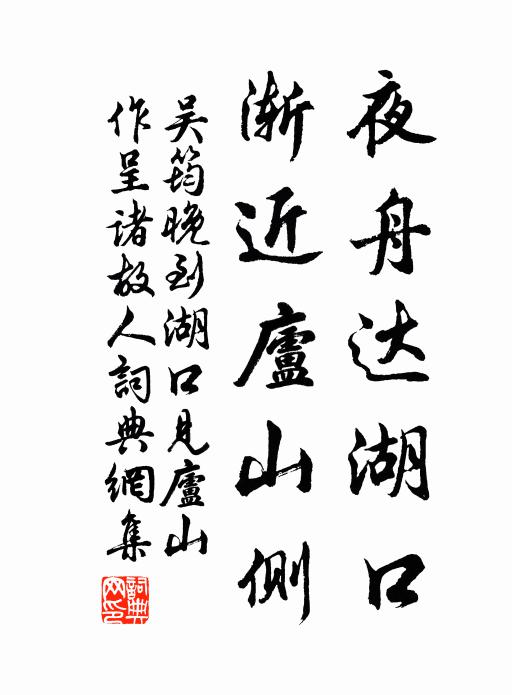 夜舟达湖口
渐近廬山侧
吴筠晚到湖口見廬山
作呈诸故人詞典網集
詞典网印